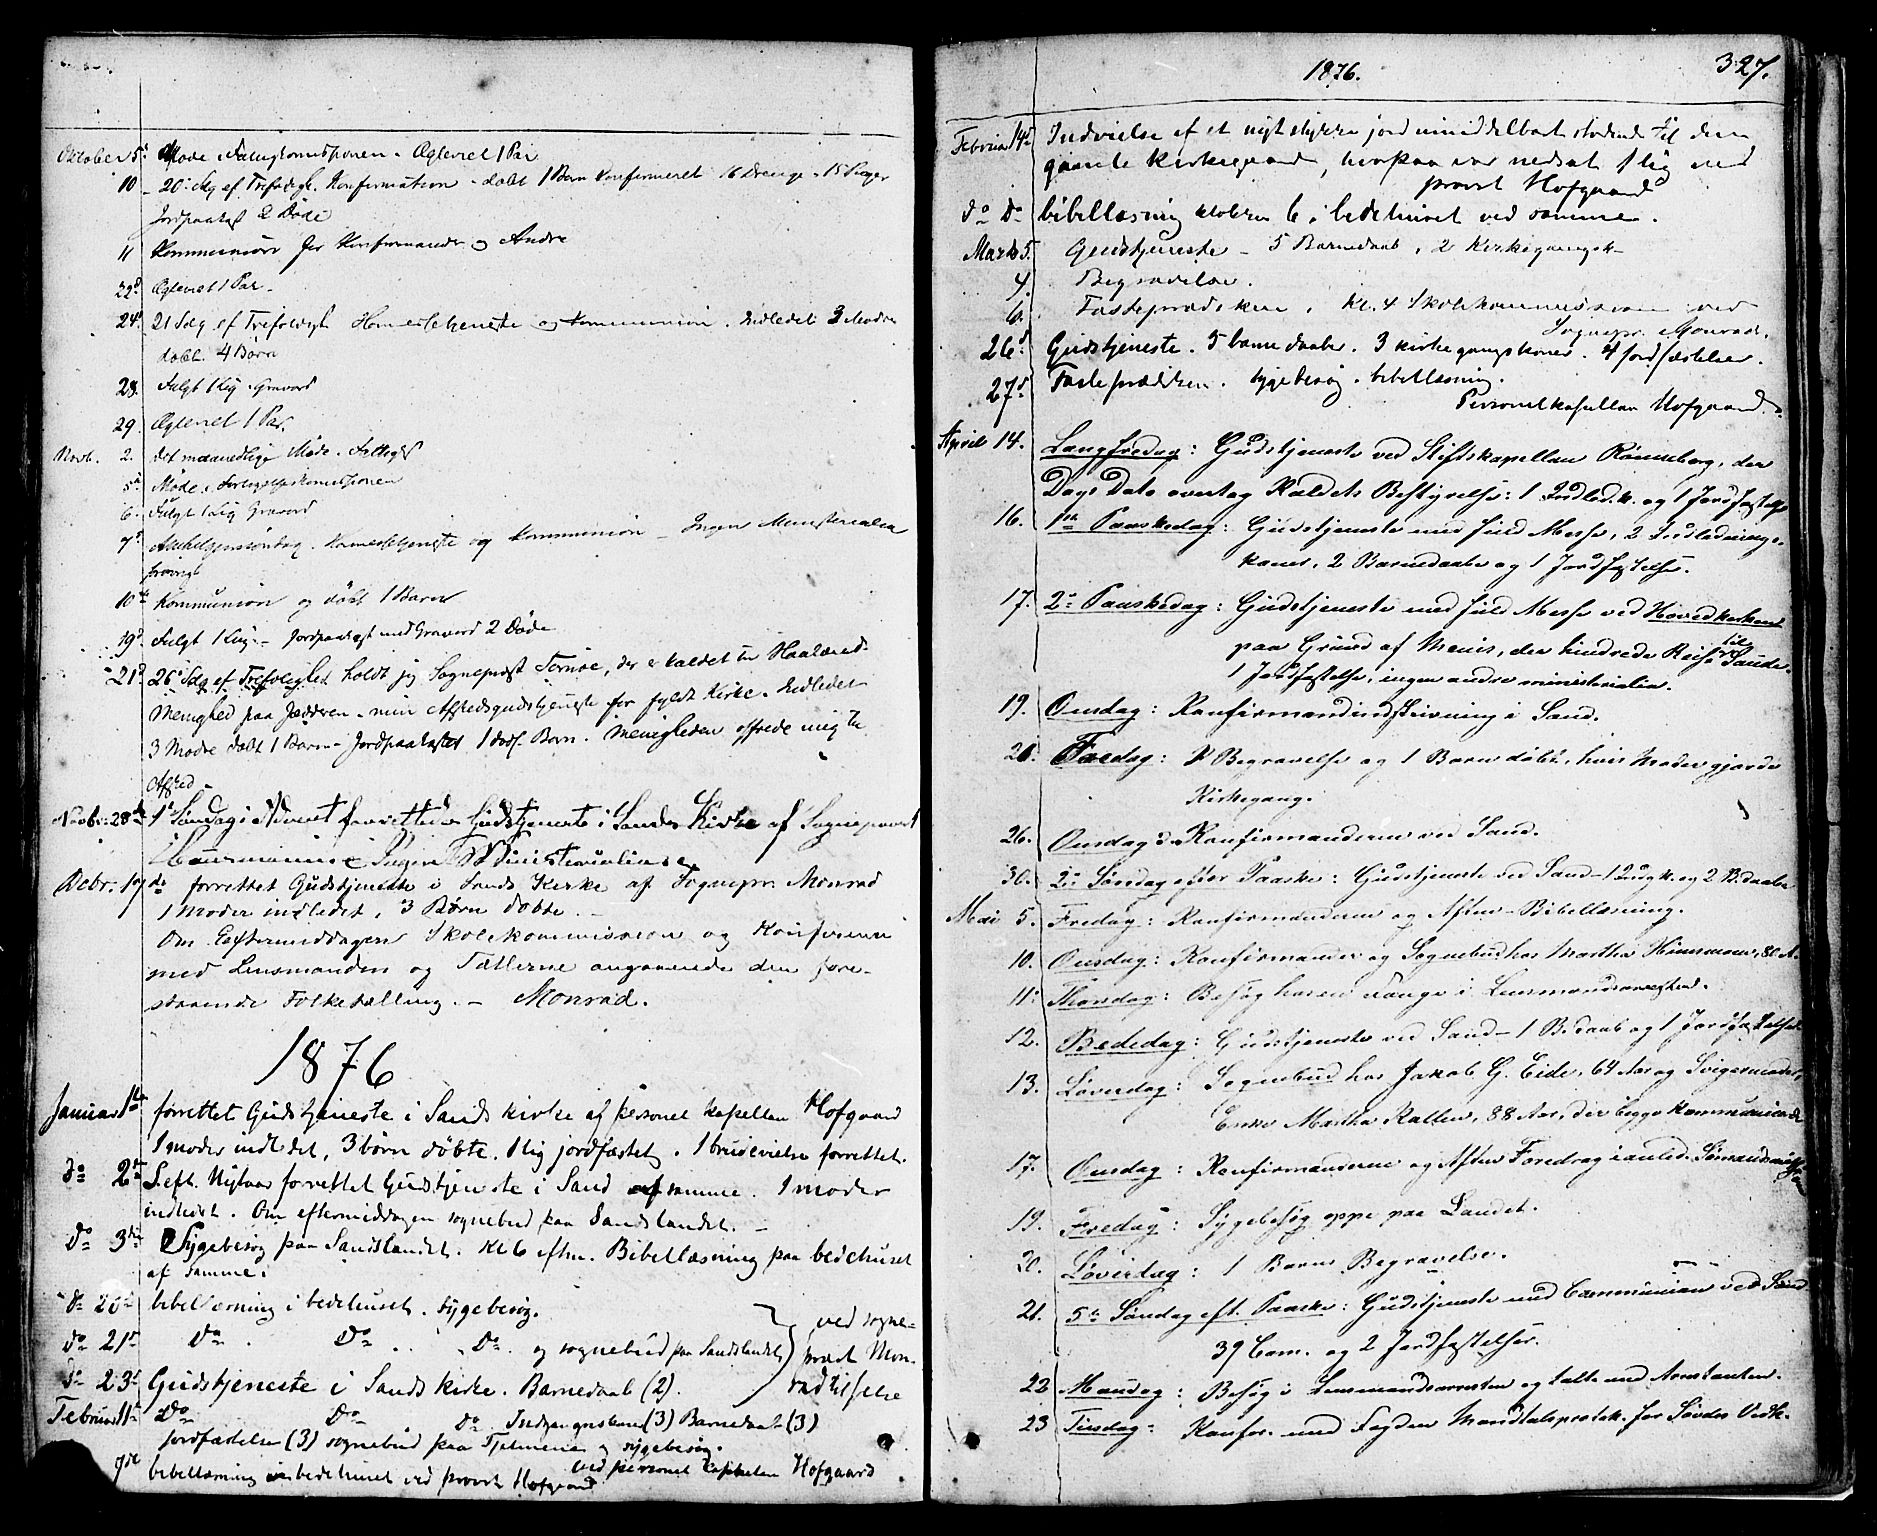 Oktober 5. Møde i Fattigkommissionen. Ægteviet 1 Par
10 20. Sdg ef Trefoldigh. Konfirmation - døbt 1 Barn Konfirmeret 16 Drenge - 15 Piger
Jordpaakast 2 Døde
11 Kommunion for Konfirmander og Andre
22d Ægteviet 1 Par -
24d 21 Sdg ef Trefoldigh Høimessetjeneste og Kommunion. Indledet 3 Mødre
døbt 4 Børn
28. Fulgt 1 Lig. Gravord
29. Ægteviet 1 Par.
Novb. 2. det maanedlige Møde. Fattigv
5d Møde i Forligelseskommissionen
6. Fulgt 1 Lig Gravord
7d Allehelgenssøndag. Høimessetjeneste og Kommunion - Ingen Ministerialia
forøvrigt
10de Kommunion og døbt 1 Barn
19d Fulgt 1 Lig - Jordpaakast med Gravord 2 Døde
21d 26. Sdg ef Trefoldighet holdt jeg Sognepræst Tornøe, der er kaldet til Haalands
Menighed paa Jæderen - min Afskedsgudstjeneste for fyldt Kirke. Indledet
3 Mødre døbt 1 Barn - Jordpaakastet 1 dødf. Barn. Menigheden offrede mig til
Afsked
Novbr. 28de 1ste Søndag i Advent forrettedes Gudstjeneste i Sands Kirke af Sogneprest
Ingen Ministerialia
Debr. 19de forrettet Gudstjeneste i Sands Kirke af Sognepr. Monrad
1 Moder indledet, 3 Børn døbte. -
Om Eftermiddagen Skolekommission og Konferense
med Lensmanden og Tællerne angaaende den fore-
staaende Folketælling. - Monrad.
1876
Januar 1ste forrettet Gudstjeneste i Sands kirke af personel kapellan Hofgaard
1 moder indledet, 3 børn døbte. 1 lig jordfæstet. 1 brudevielse forrettet.
do 2den S. eft. Nytaar forrettet Gudstjeneste i Sand af samme. 1 moder
indledet. Om eftermiddagen sognebud paa Sandslandet. -
do 3die Sygebesøg paa Sandslandet. Kl 6 eftm. Bibellæsning paa bedehuset
af samme.
do 20d bibellæsning i bedehuset. sygebesøg. } ved sogne-
do 21d do. do. do. og sognebud paa Sandslandet } præst Mon-
do 23d Gudstjeneste i Sands kirke. Barnedaab (2). } rad tilfælde
Februar do do do Indgangskoner (3) Barnedaab (3)
Jordfæstelser (3) sognebud paa og sygebesøg.
ved personel kapellan Hofgaard
7de bibellæsning i bedehuset ved provst Hofgaard
1876. 327.
Februar 14d Indvielse af et nyt stykke jord umiddelbart stødende til den
gamle kirkegaard, hvorpaa var nedsat 1 lig ved
provst Hofgaard
do do bibellæsning klokken 6 i bedehuset ved samme.
Marts 5. Gudstjeneste - 5 Barnedaab, 2 Kirkegangsk-
Begravelse.
6. Fasteprædiken. Kl. 4 Skolekommission ved
Sognepr. Monrad.
26d Gudstjeneste. 5 barnedaaber. 3 kirkegangskoner. 4 jordfæstelser.
27d Fasteprædiken. sygebesøg. bibellæsning.
Personelkapellan Hofgaard.
April 14. Langfredag: Gudstjeneste ved Stiftskapellan Rønneberg, der
Dags Dato overtog Kaldets Bestyrelse: 1 Indled.k. og 1 Jordfæstelse
16. 1ste Paaskedag: Gudstjeneste med fuld Messe, 2 Indlednings-
koner, 2 Barnedaabe og 1 Jordfæstelse.
17. 2den Paaskedag: Gudstjeneste med fuld Messe ved Hovedkirken
paa Grund af Menis, der hindrede Reise til Sande.
1 Jordfæstelse, ingen andre ministerialia.
19. Onsdag: Konfirmandindskrivning i Sand.
Fredag: Begravelse og 1 Barn døbt, hvis Moder gjorde
Kirkegang.
26. Onsdag: Konfirmanderne ved Sand.
30. 2den Søndag efter Paaske: Gudstjeneste ved Sand - 1 Indg.k. og 2 B.daabe
Mai 5. Fredag: Konfirmanderne og Aften-Bibellæsning.
10. Onsdag: Konfirmander og Sognebud hos Martha 80 A.
11. Thorsdag: Besøg hos en Fange i Lensmandsarresten.
12. Bededag: Gudstjeneste ved Sand - 1 B.daab og 1 Jordfæstelse
13. Løverdag: Sognebud hos Jakob G. Eide, 64 Aar og Svigermoder,
Enke Martha 88 Aar, der begge kommunicerede
17. Onsdag: Konfirmanderne og Aften Foredrag i anled.
19. Fredag: Sygebesøg oppe paa Landet.
20. Løverdag: 1 Barns Begravelse.
21. 5te Søndag eft. Paaske: Gudstjeneste med Communion ved Sand
39 Com. og 2 Jordfæstelser.
22 Mandag: Besøg i Lensmandsarresten og talte med Arrestanten.
23 Tirsdag: Konfer. med Fogden Mandtalsprotok. for